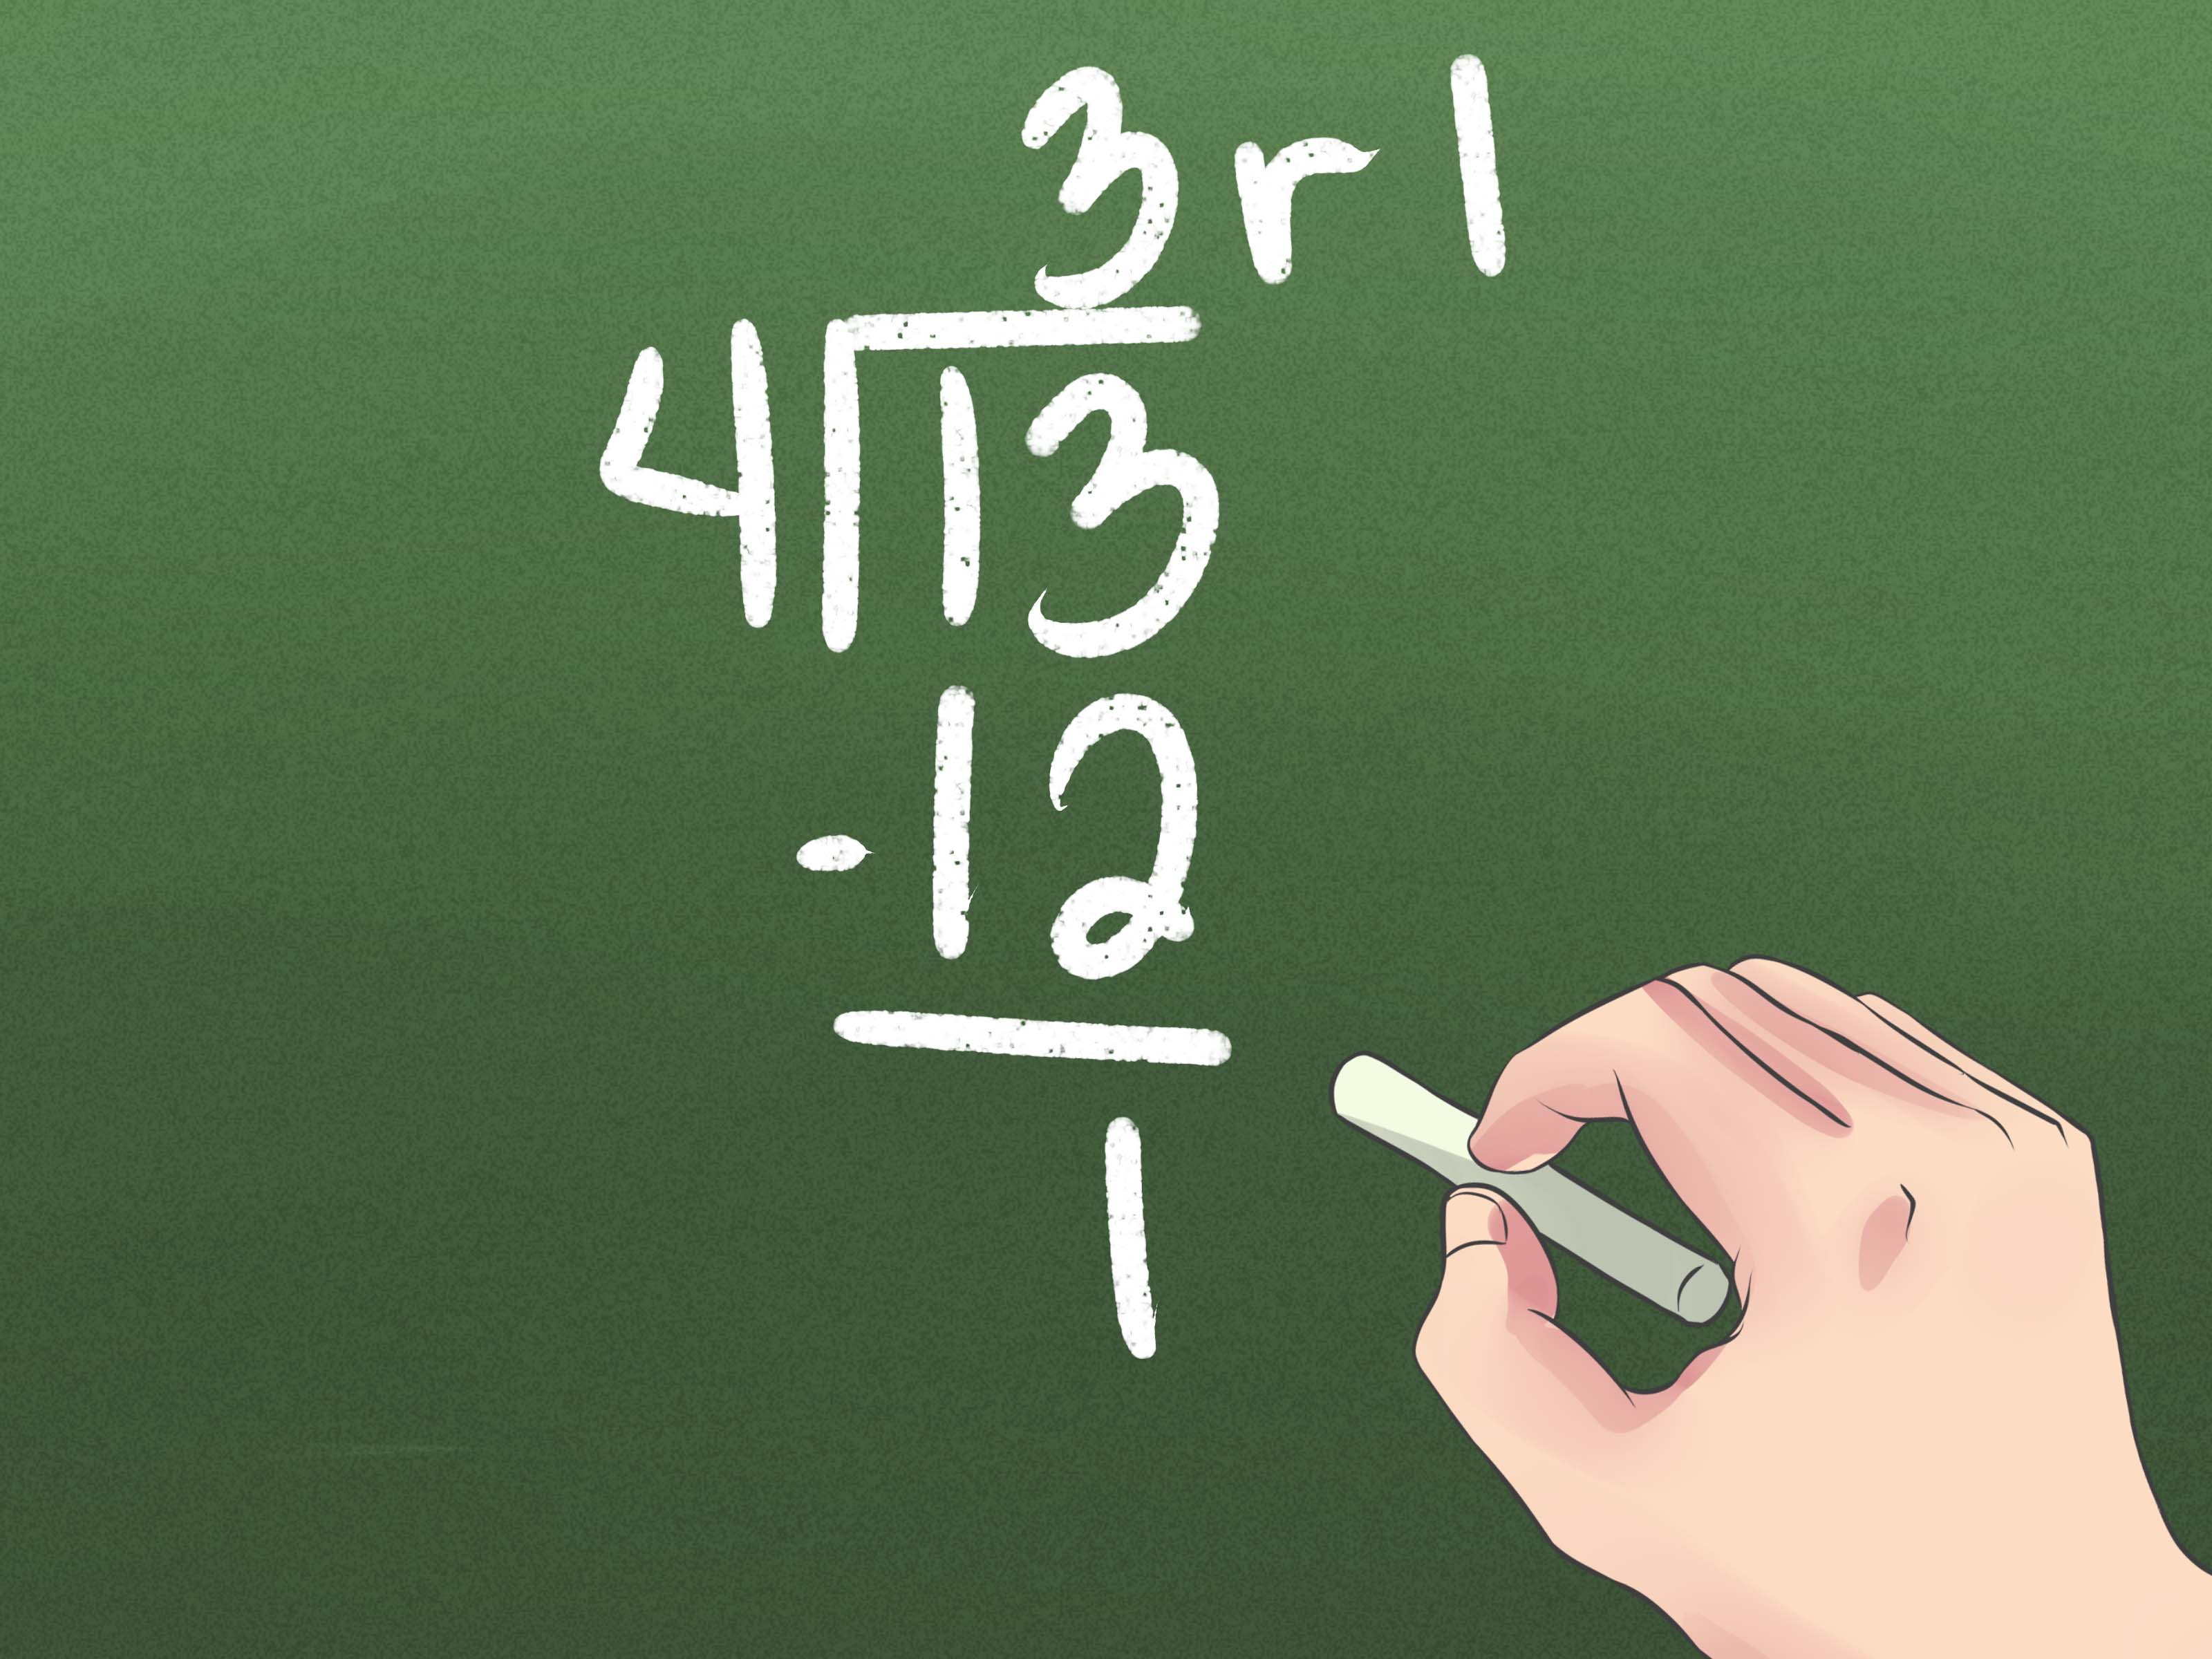 3 r 1
4 13
- 12
1